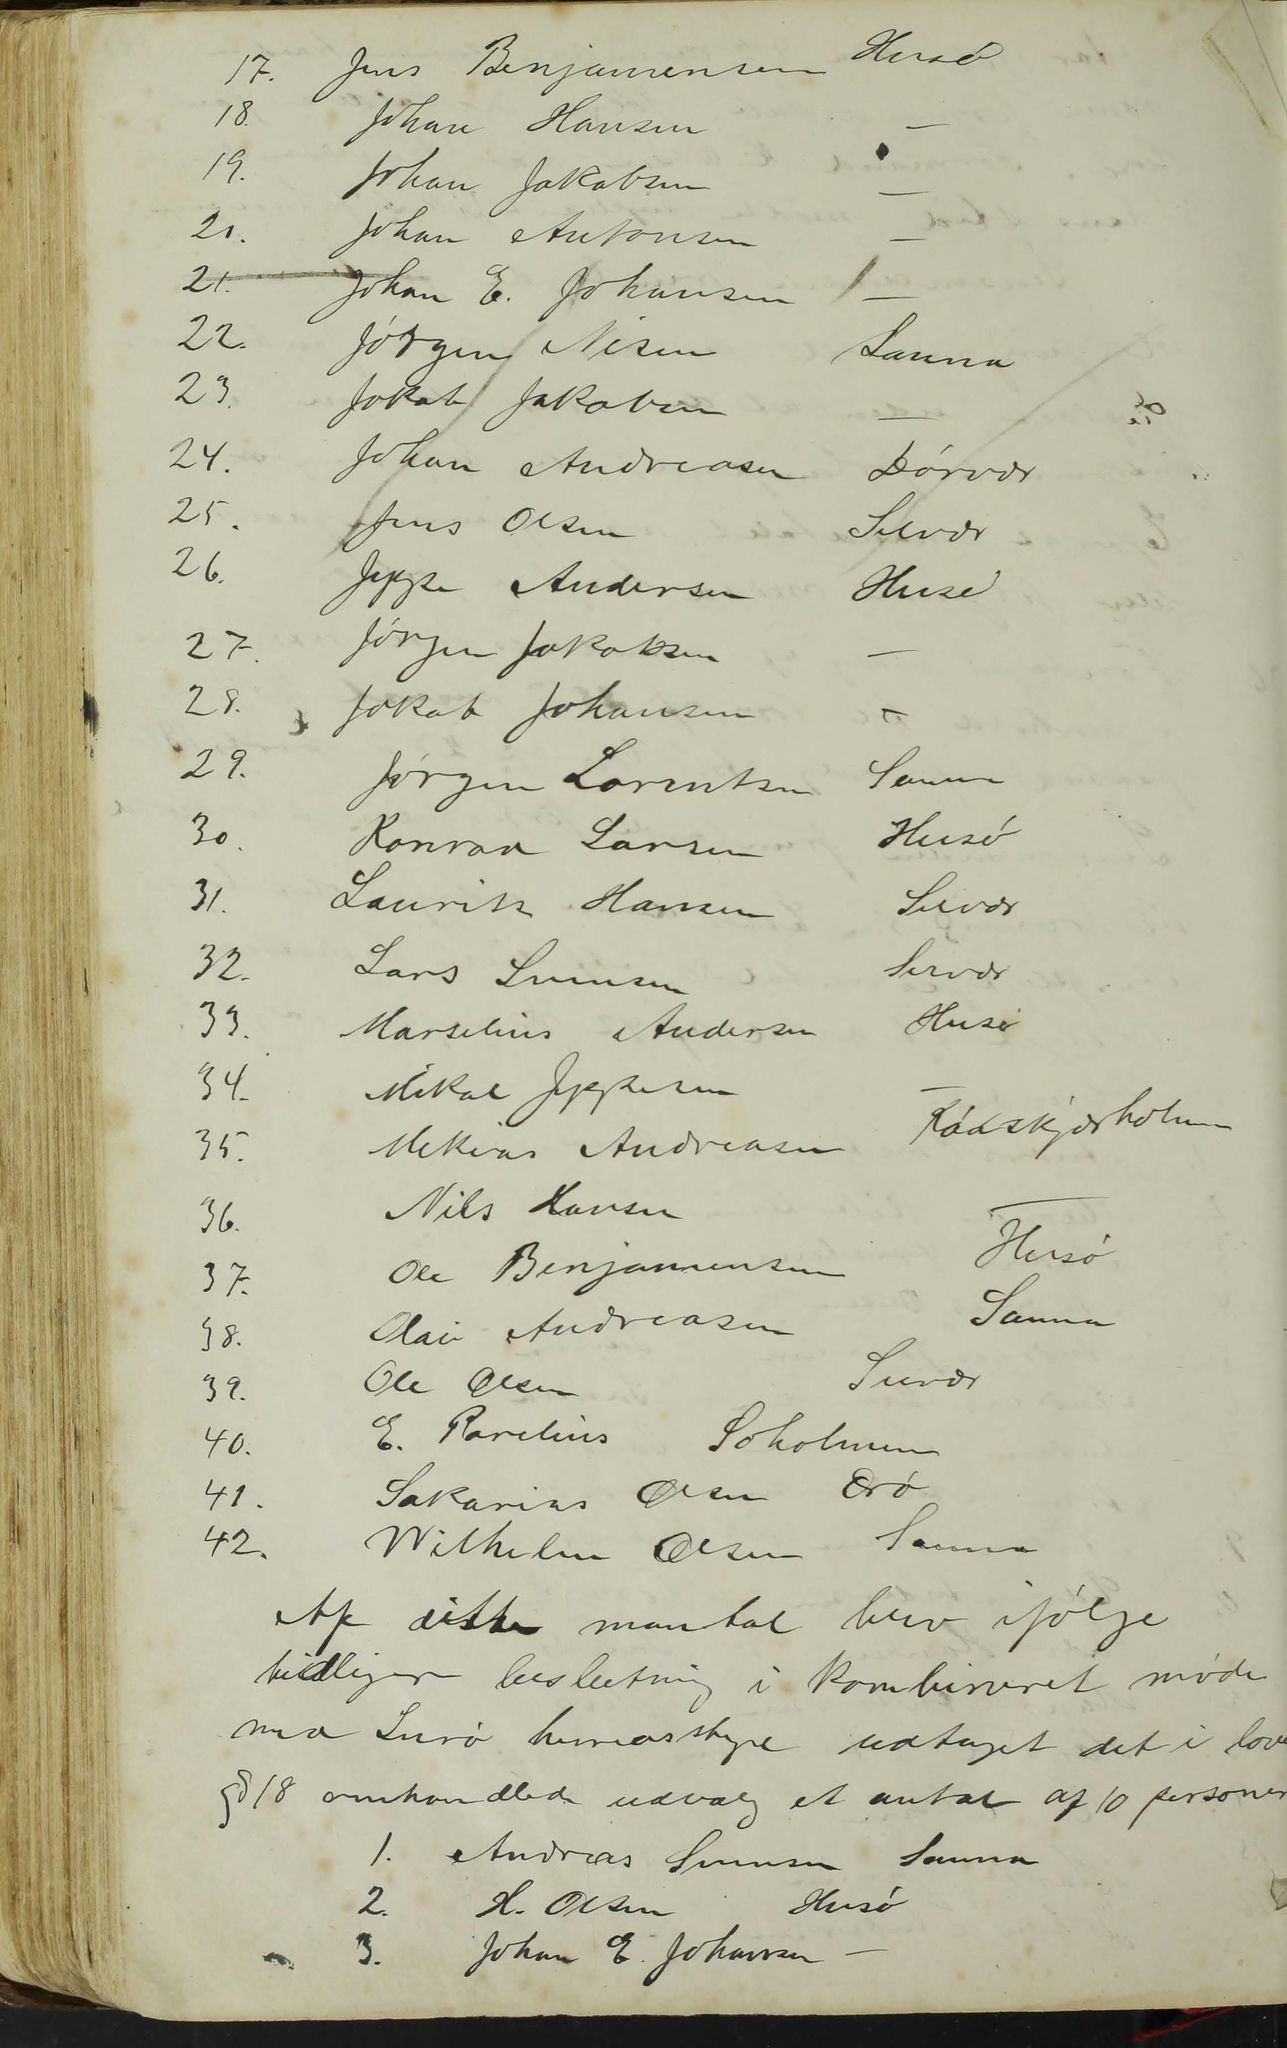 17. Jens Benjamensen Husø
18. Johan Hansen —
19. Johan Jakobsen —
20. Johan Antonsen —
21. Johan E. Johansen —
22. Jørgen Nisen Sanna
23. Jakob Jakobsen —
24. Johan Andreasen Dørvær
25. Jens Olsen Selvær
26. Jeppe Andersen Husø
27. Jørgen Jakobsen —
28. Jakob Johansen —
29. Jørgen Lorentsen Sanna
30. Konrad Larsen Husø
31. Lauritz Hansen Selvær
32. Lars Svensen Selvær
33. Marselius Andersen Husø
34. Mikal Jeppesen —
35. Mekias Andreasen Rødskjærholmen
36. Nils Hansen —
37. Ole Benjamensen Husø
38. Olai Andreasen Sanna
39. Ole Olsen Selvær
40. E. Parelius Søholmen
41. Sakarias Olsen Ørø
42. Wilhelm Olsen Sanna
Af dette mantal blev ifølge
tidligere beslutning i kombineret møde
med Lurø herredsstyre udtaget det i lovens
§ 18 omhandlede udvalg et antal af 10 personer
1. Andreas Svensen Sanna
2. H. Olsen Husø
3. Johan E. Johansen —